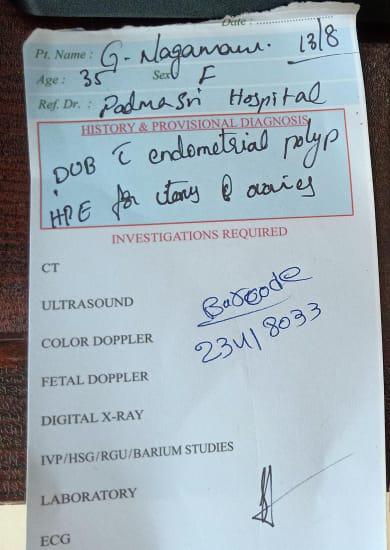 Date :
Pt. Name : G. Nagamani. 13/8
Age : 35 Sex F
Ref. Dr. : Padmasri Hospital
HISTORY & PROVISIONAL DIAGNOSIS
DUB c̄ endometrial polyp
HPE for uterus & ovaries
INVESTIGATIONS REQUIRED
CT
ULTRASOUND
COLOR DOPPLER
FETAL DOPPLER
DIGITAL X-RAY
IVP/HSG/RGU/BARIUM STUDIES
LABORATORY
ECG
Barcode